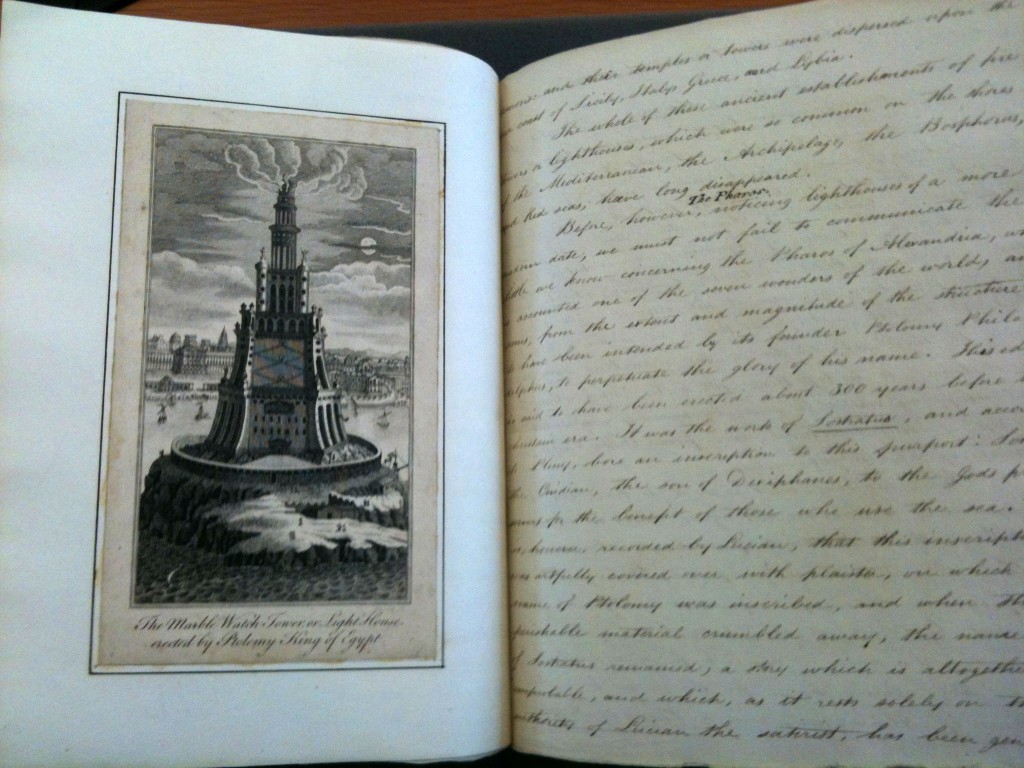 The Marble Watch Tower, or Light House
erected by Ptolomy King of Egypt
and their temples or towers were dispersed upon the
coast of Sicily, Italy, Greece, and Lybia.
The whole of these ancient establishments of fire
a lighthouses, which were so common on the shores
the Mediterranean, the Archipelago, the Bosphorus,
Red seas, have long disappeared.
The Pharos.
Before, however, noticing lighthouses of a more
date, we must not fail to communicate the
we know concerning the Pharos of Alexandria,
accounted one of the seven wonders of the world,
from the extent and magnitude of the structure
have been intended by its founder Ptolomy Phila
to perpetuate the glory of his name. This
said to have been erected about 300 years before
era. It was the work of Sostratus, and
Pliny, bore an inscription to this purport:
the Cnidian, the son of Dexiphanes, to the Gods
for the benefit of those who use the sea.
however, recorded by Lucian, that this inscript
artfully covered over with plaister, on which
name of Ptolomy was inscribed, and when
material crumbled away, the name
Sostratus remained, a story which is altogether
and which, as it rests solely on
of Lucian the satirist, has been gen